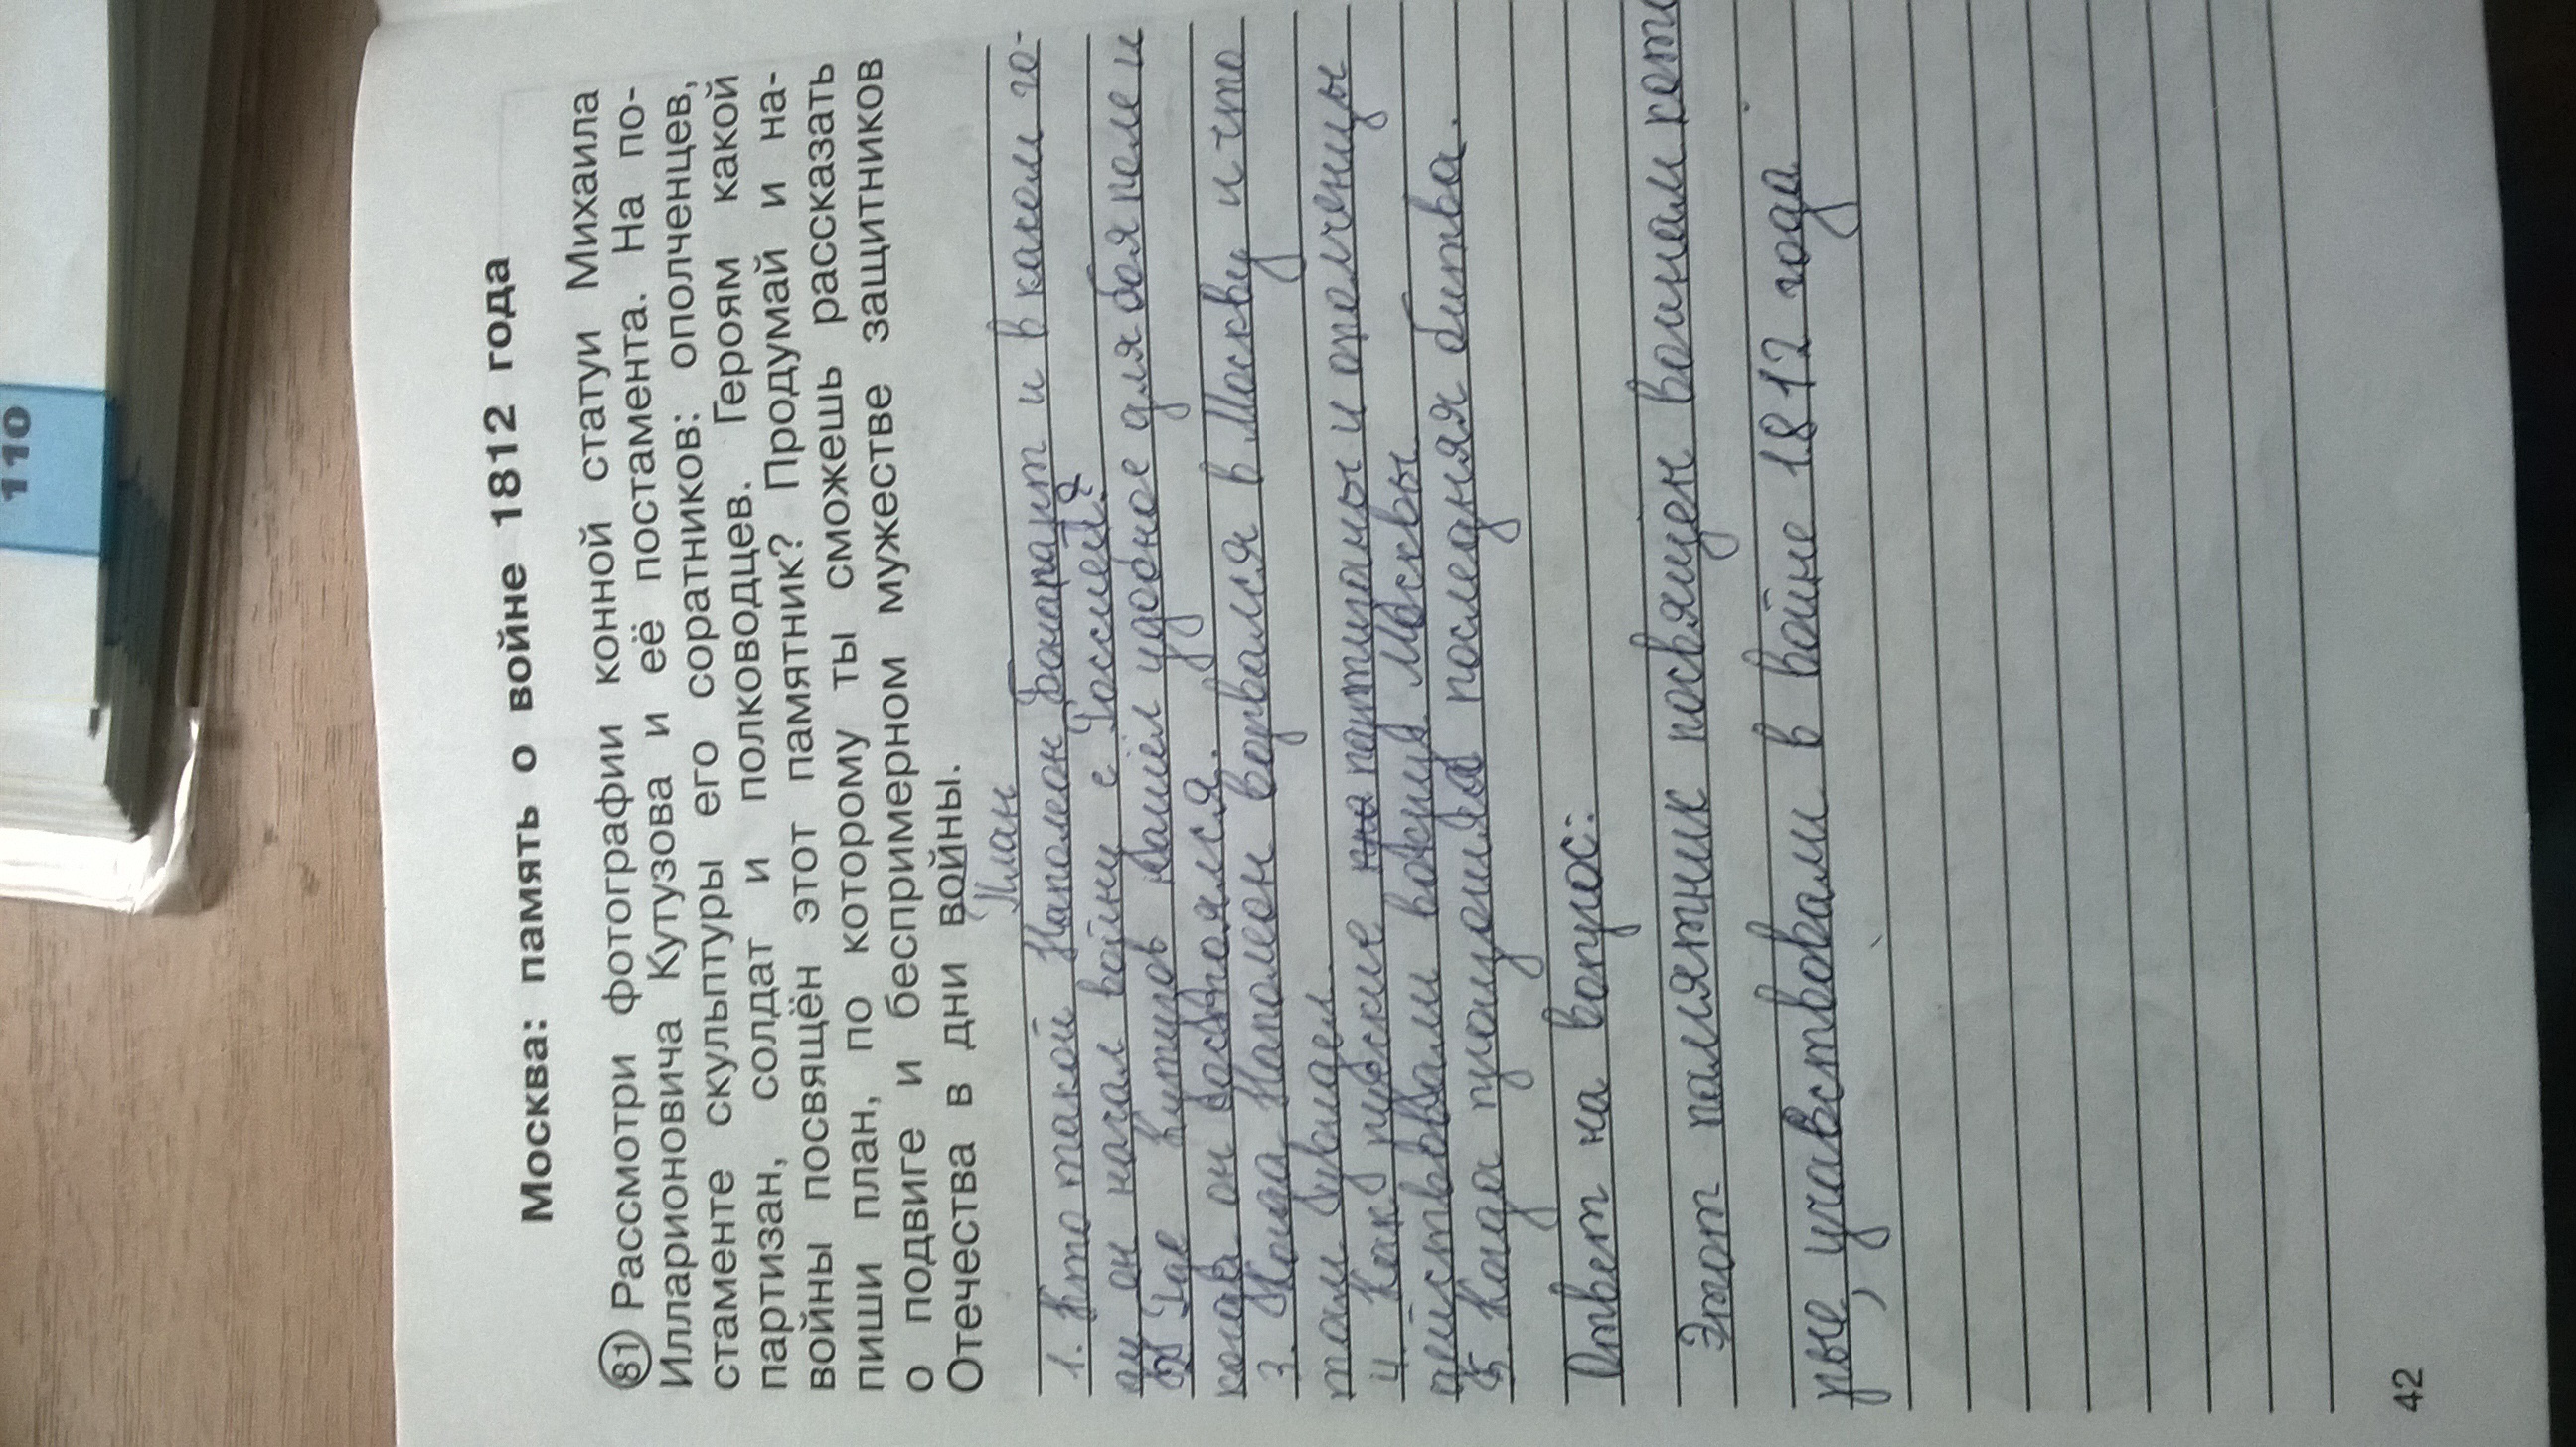 110
Москва: память о войне 1812 года
81 Рассмотри фотографии конной статуи Михаила
Илларионовича Кутузова и её постамента. На по-
стаменте скульптуры его соратников: ополченцев,
партизан, солдат и полководцев. Героям какой
войны посвящён этот памятник? Продумай и на-
пиши план, по которому ты сможешь рассказать
о подвиге и беспримерном мужестве защитников
Отечества в дни войны.
План
1. Кто такой Наполеон Бонапарт и в каком го-
ду он начал войну с Россией?
2 Где Кутузов нашёл удобное для боя поле и
когда он состоялся.
3. Когда Наполеон ворвался в Москву и что
там увидел.
4. Как русские партизаны и ополченцы
действовали вокруг Москвы
5. Когда произошла последняя битва.
Ответ на вопрос:
Этот памятник посвящен воинам кото
рые, учавствовали в войне 1812 года
42